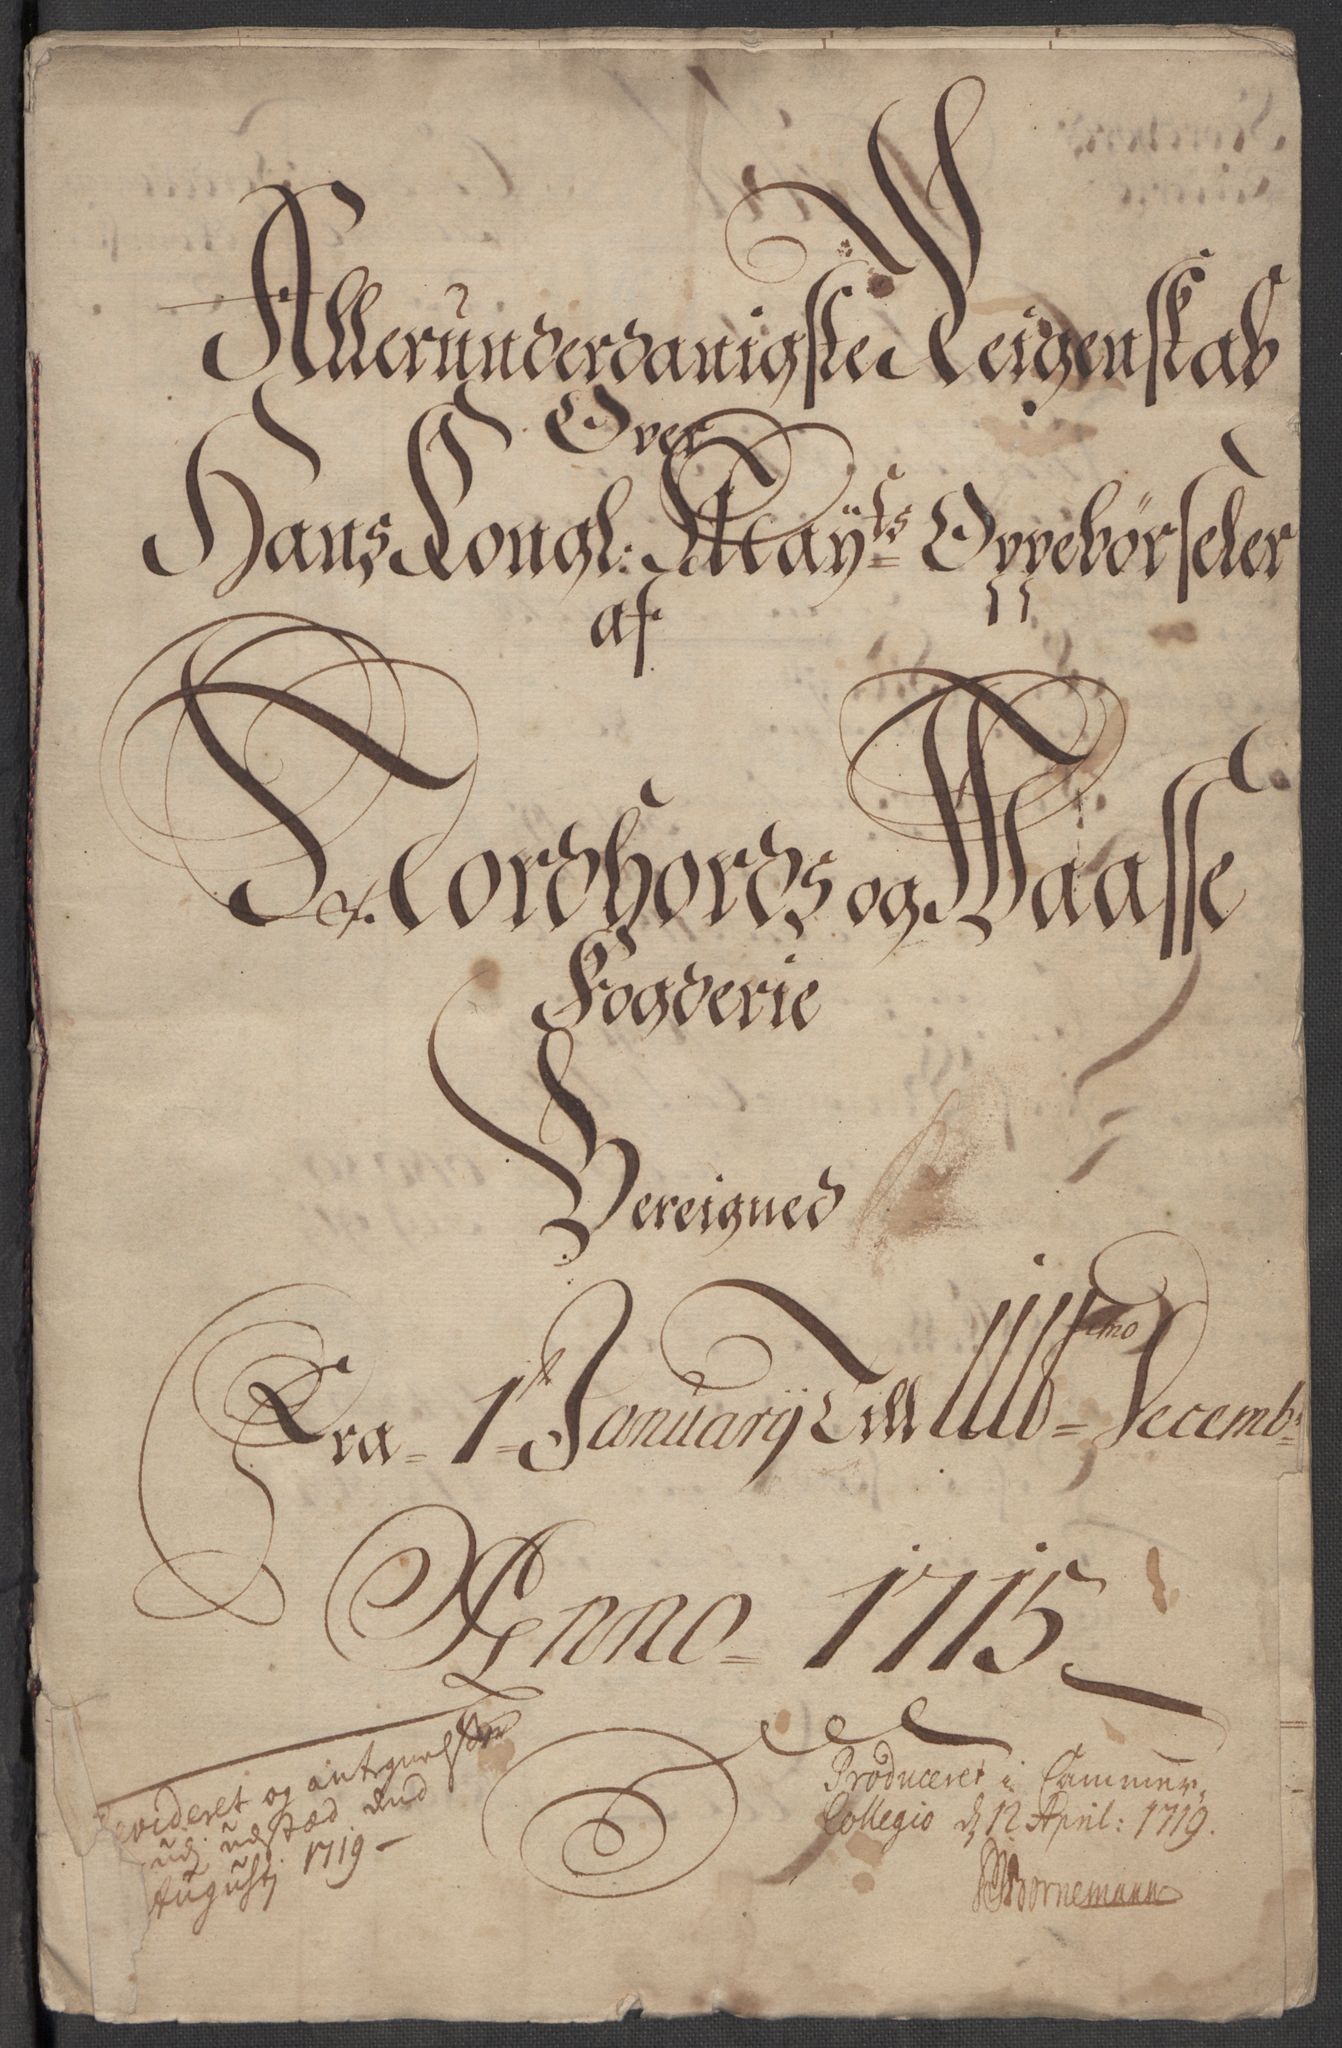 Allerunderdanigste Reigenskab
Over
Hans Kongl: Mayts Oppebörseler
af
Nordhords og Waasse
Fogderie
Bereigned
Fra 1te January Till ultimo Decembr
Anno 1715
Revideret og antegnelser
udstæd
Augustj 1719
Produceret i Cammer
Collegio d 12 April: 1719.
Bornemann